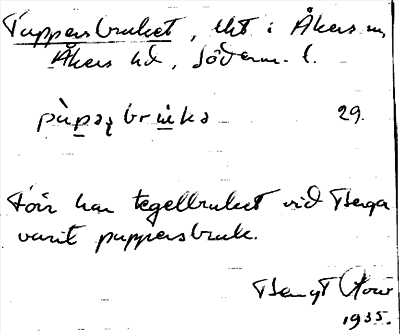 Puppersbruket, tkt i Åkers sn,
Åkers hd, Söderm. l.
pùpaʂbrukə 29.
Förr har tegelbruket vid Berga
varit puppersbruk.
Bengt
1935.